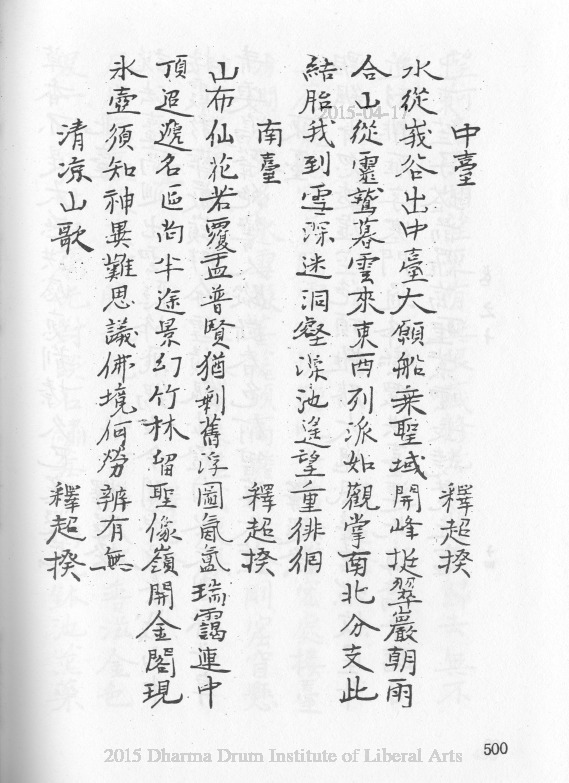 中臺 釋超揆
水從峩谷出中臺大願船乘聖域開峰挺翠巖朝雨
合山從靈鷲暮雲來東西列派如觀掌南北分支此
結胎我到雪深迷洞壑澡池遙望重徘徊
南臺 釋超揆
山布仙花若覆盂普賢猶剩舊浮圖氤氳瑞靄連中
頂迢遞名區尚半途景幻竹林留聖像嶺開金閣現
氷壺須知神異難思議佛境何勞辨有無
清凉山歌 釋超揆
500
2015-04-17
2015 Dharma Drum Institute of Liberal Arts